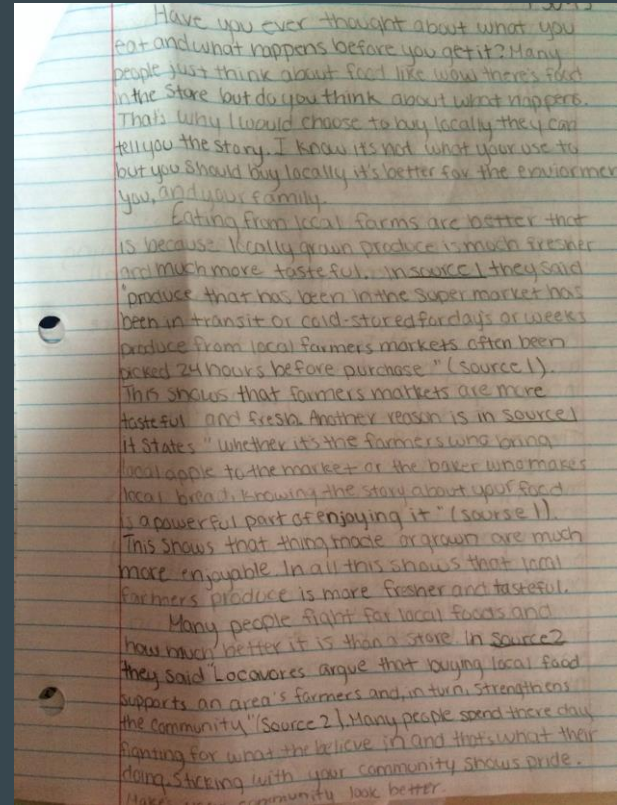 Have you ever thought about what you
eat and what happens before you get it? Many
people just think about food like wow there's food
in the store but do you think about what happens.
That's why I would choose to buy locally they can
tell you the story. I know its not what your use to
but you should buy locally it's better for the enviormen
you, and your family.
Eating from local farms are better that
is because locally grown produce is much fresher
and much more tasteful. In source 1 they said
"produce that has been in the super market has
been in transit or cold-stored for days or weeks
produce from local farmers markets often been
picked 24 hours before purchase" (source 1).
This shows that farmers markets are more
tasteful and fresh. Another reason is in source 1
it states "whether it's the farmers who bring
local apple to the market or the baker who makes
local bread, knowing the story about your food
is a powerful part of enjoying it" (sourse 1).
This shows that thing made or grown are much
more enjoyable. In all this shows that local
farmers produce is more fresher and tasteful.
Many people fight for local foods and
how much better it is than a store. In source 2
they said "Locavores argue that buying local food
supports an area's farmers and, in turn, strengthens
the community" (Source 2). Many people spend there day
fighting for what the believe in and that's what their
doing. Sticking with your community shows pride.
community look better.